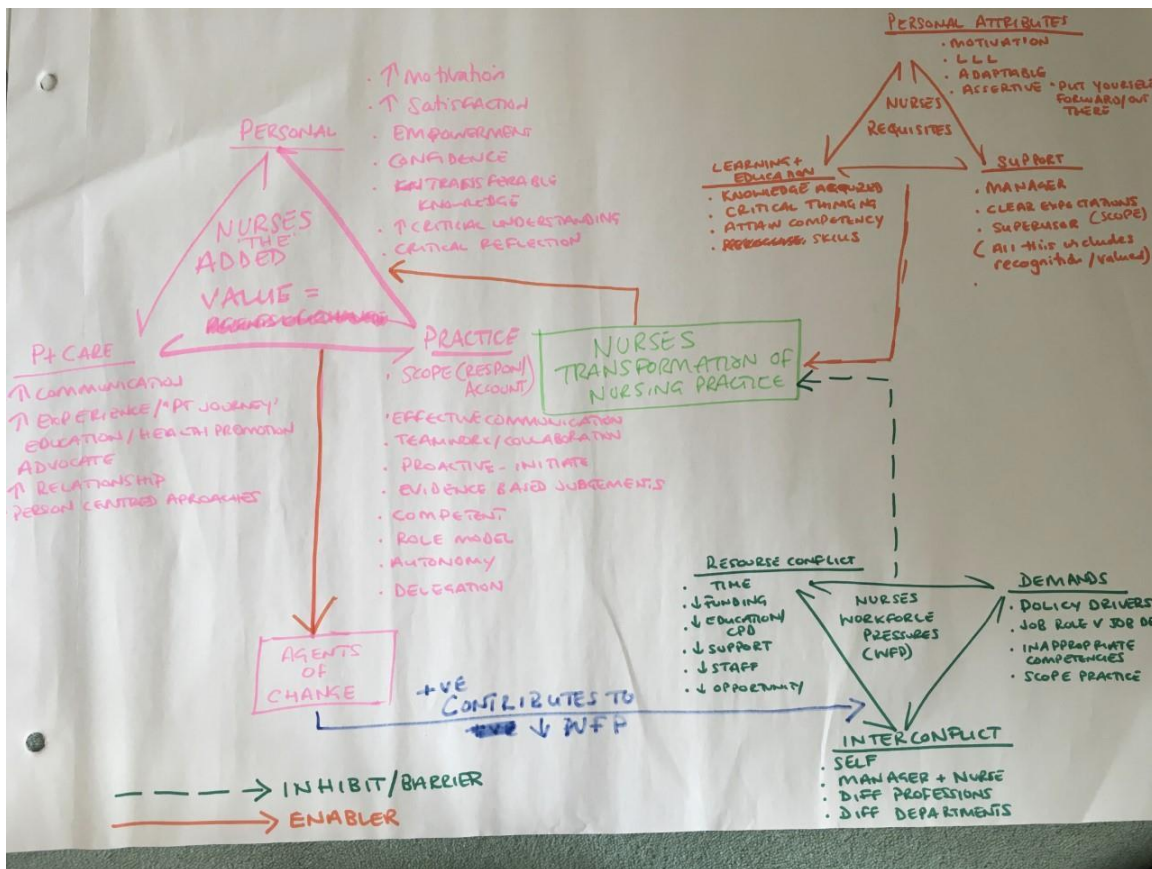 PERSONAL
NURSES
'THE'
ADDED
VALUE =
· ↑ Motivation
· ↑ SATISFACTION
· EMPOWERMENT
· CONFIDENCE
· TRANSFERABLE
KNOWLEDGE
· ↑ CRITICAL UNDERSTANDING
· CRITICAL REFLECTION
Pt CARE
↑ COMMUNICATION
↑ EXPERIENCE/"PT JOURNEY'
EDUCATION/HEALTH PROMOTION
ADVOCATE
↑ RELATIONSHIP
PERSON CENTRED APROACHES
PRACTICE
· SCOPE (RESPON/
ACCOUNT)
· EFFECTIVE COMMUNICATION
· TEAMWORK/COLLABORATION
· PROACTIVE - INITIATE
· EVIDENCE BASED JUDGEMENTS
· COMPETENT
· ROLE MODEL
· AUTONOMY
· DELEGATION
PERSONAL ATTRIBUTES
· MOTIVATION
· LLL
· ADAPTABLE
· ASSERTIVE "PUT YOURSELF
FORWARD/OUT
THERE
NURSES
REQUISITES
LEARNING +
EDUCATION
· KNOWLEDGE ACQUIRED
· CRITICAL THINGING
· ATTAIN COMPETENCY
· SKILLS
SUPPORT
· MANAGER
· CLEAR EXPECTATIONS
· SUPERVISOR (SCOPE)
( All this includes
recognition/valued)
NURSES
TRANSFORMATION OF
NURSING PRACTICE
AGENTS
OF
CHANGE
+VE
CONTRIBUTES TO
↓ WFP
RESOURSE CONFLICT
· TIME
· ↓ FUNDING
· ↓ EDUCATION/
CPD
· ↓ SUPPORT
· ↓ STAFF
· ↓ OPPORTUNITY
NURSES
WORKFORCE
PRESSURES
(WFP)
DEMANDS
· POLICY DRIVERS
· JOB ROLE V JOB DE
· INAPPROPRIATE
COMPETENCIES
· SCOPE PRACTICE
INTERCONFLICT
· SELF
· MANAGER + NURSE
· DIFF PROFESSIONS
· DIFF DEPARTMENTS
INHIBIT/BARRIER
ENABLER